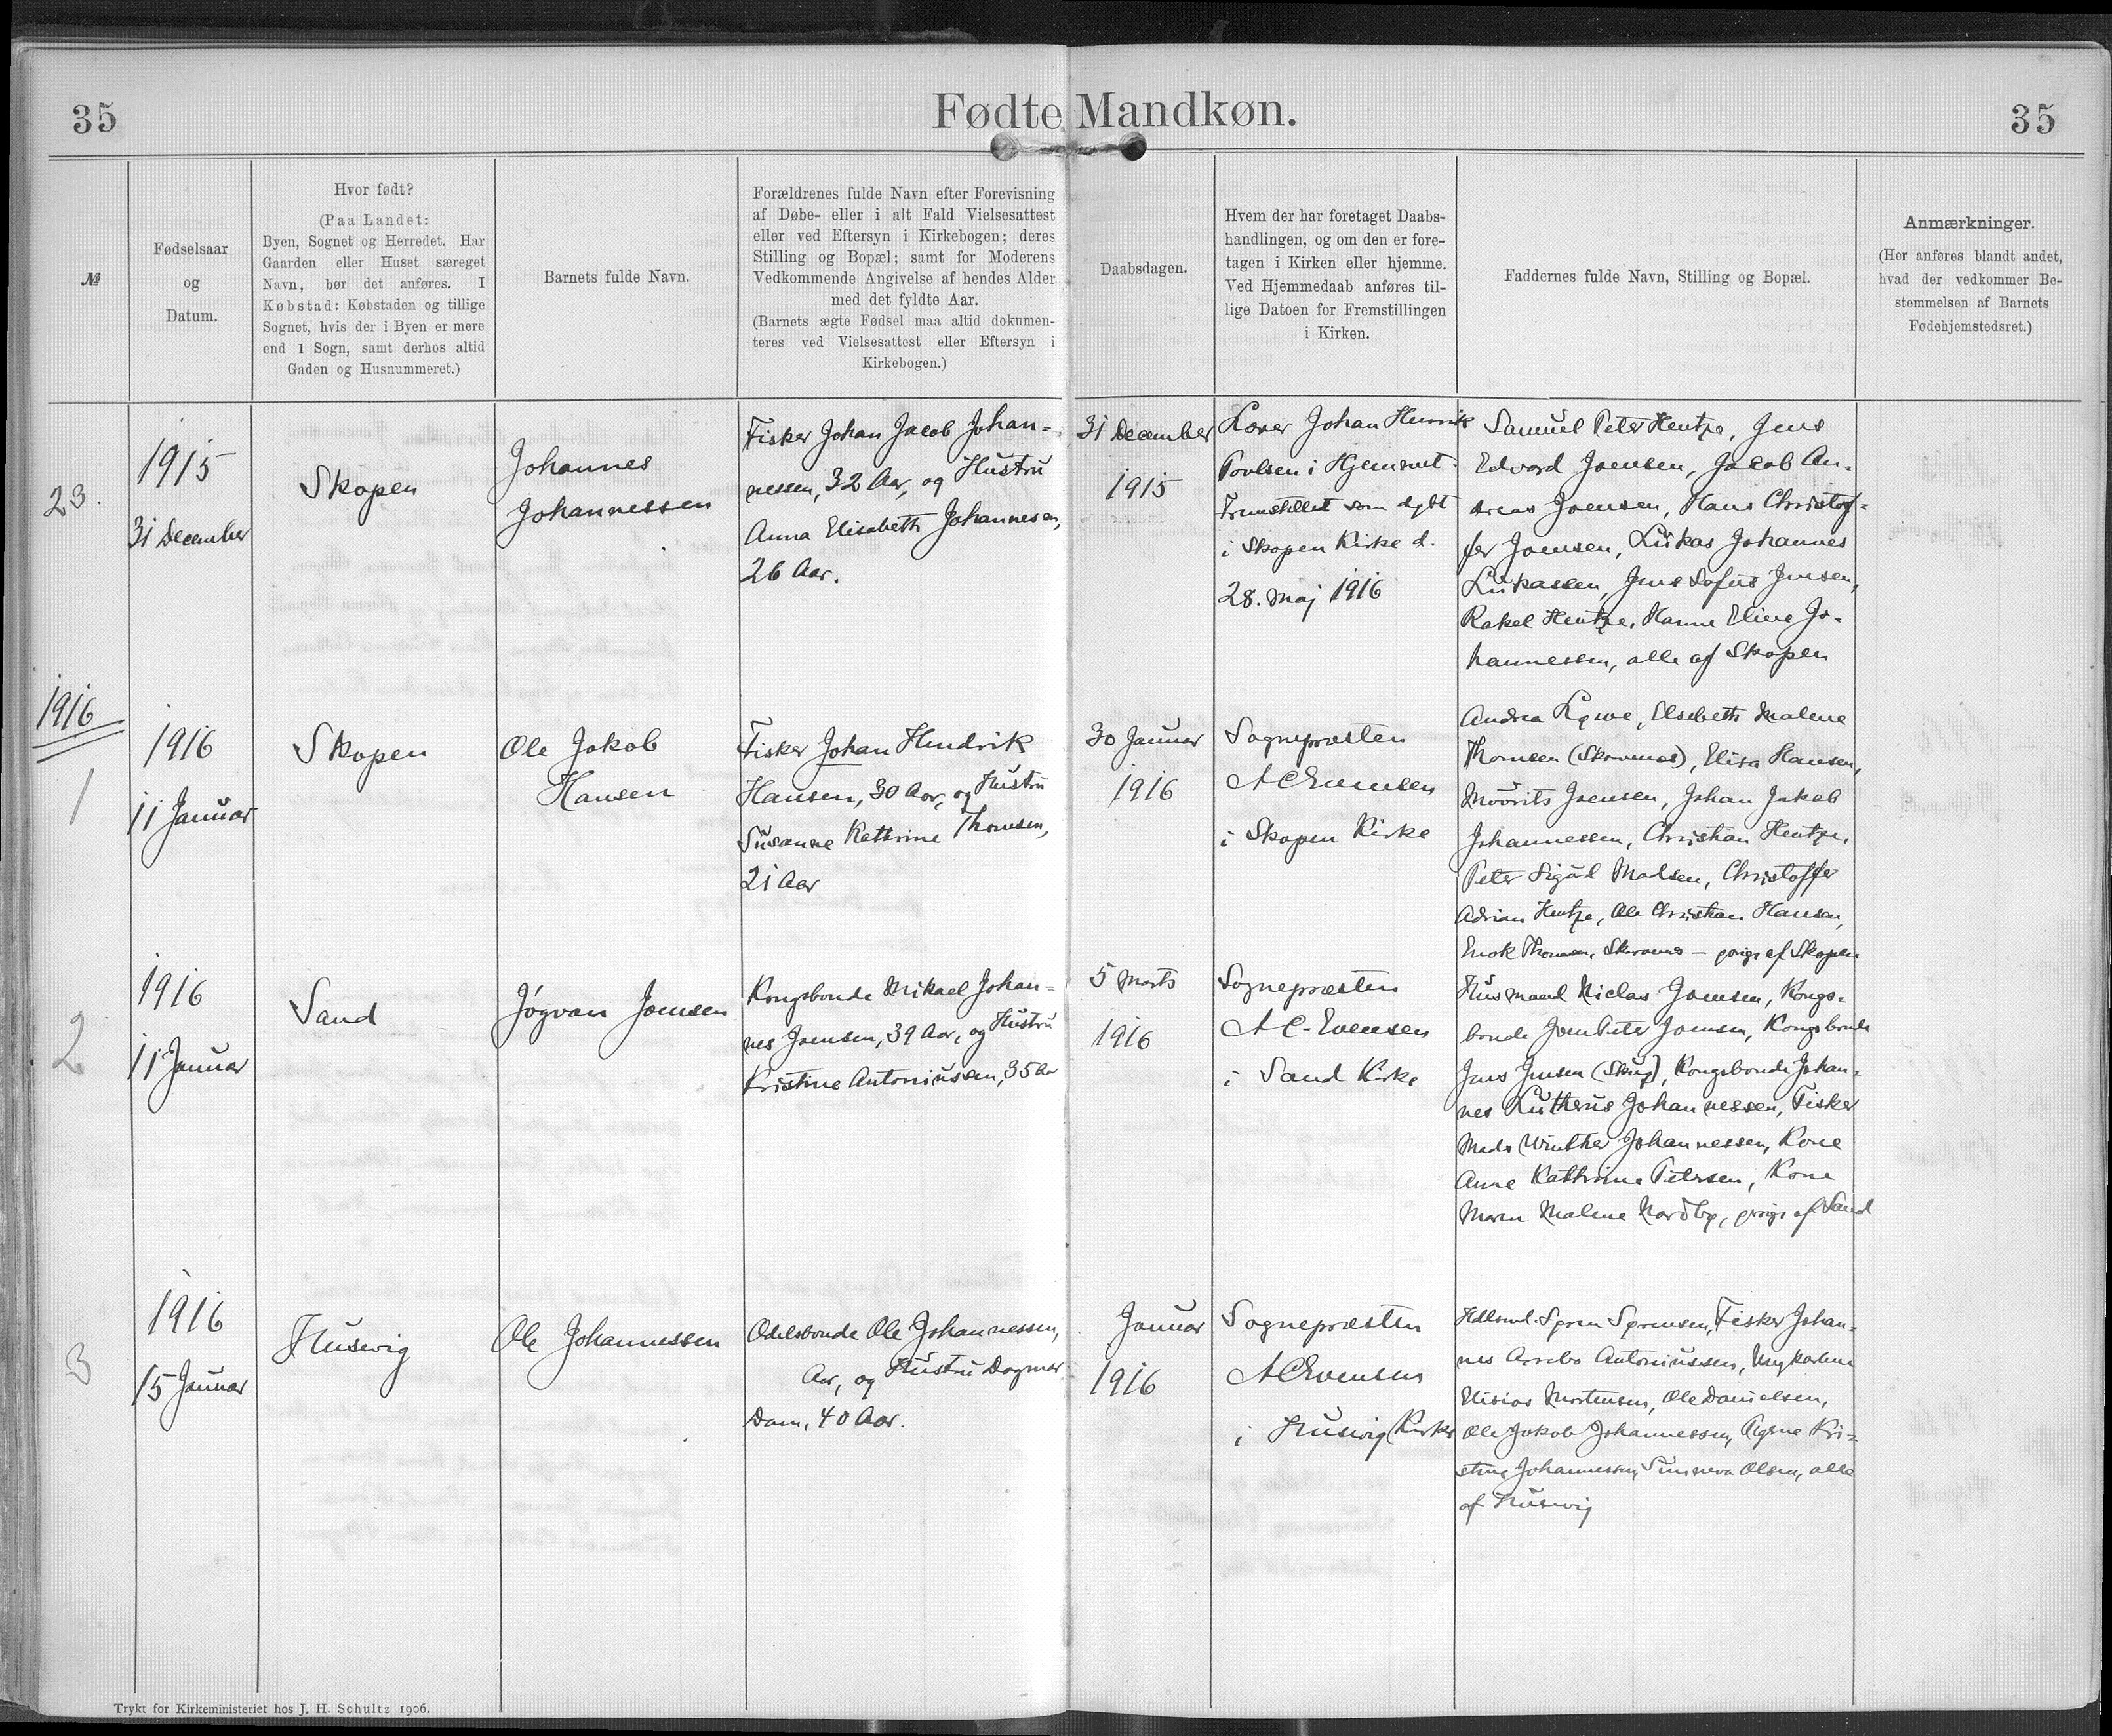 35
Fødte Mandkøn.
35
№
Fødselsaar
og
Datum.
Hvor født?
(Paa Landet:
Byen, Sognet og Herredet. Har
Gaarden eller Huset særeget
Navn, bør det anføres. I
Købstad: Købstaden og tillige
Sognet, hvis der i Byen er mere
end 1 Sogn, samt derhos altid
Gaden og Husnummeret.)
Barnets fulde Navn.
Forældrenes fulde Navn efter Forevisning
af Døbe- eller i alt Fald Vielsesattest
eller ved Eftersyn i Kirkebogen; deres
Stilling og Bopæl; samt for Moderens
Vedkommende Angivelse af hendes Alder
med det fyldte Aar.
(Barnets ægte Fødsel maa altid dokumen-
teres ved Vielsesattest eller Eftersyn i
Kirkebogen.)
Daabsdagen.
Hvem der har foretaget Daabs-
handlingen, og om den er fore-
tagen i Kirken eller hjemme.
Ved Hjemmedaab anføres til-
lige Datoen for Fremstillingen
i Kirken.
Faddernes fulde Navn, Stilling og Bopæl.
Anmærkninger.
(Her anføres blandt andet,
hvad der vedkommer Be-
stemmelsen af Barnets
Fødehjemstedsret.)
23.
1915
31 December
Skopen
Johannes
Johannessen
Fisker Johan Jacob Johan-
nessen, 32 Aar, og Hustru
Anna Elisabeth Johannesen,
26 Aar.
31 December
1915
Lærer Johan Henrik
Poulsen i Hjemmet.
Fremstillet som døbt
i Skopen Kirke d.
28. Maj 1916
Samuel Peter Hentze, Jens
Edvard Joensen, Jacob An-
dreas Joensen, Hans Christof-
fer Joensen, Lukas Johannes
Lukassen, Jens Sofus Jensen,
Rakel Hentze, Hanne Eline Jo-
hannessen, alle af Skopen
1916
1
1916
11 Januar
Skopen
Ole Jakob
Hansen
Fisker Johan Hendrik
Hansen, 30 Aar, og Hustru
Susanne Kathrine Thomsen,
21 Aar
30 Januar
1916
Sognepræsten
A C Evensen
i Skopen Kirke
Andrea Løwe, Elsebeth Malene
Thomsen (Skarvenes), Elisa Hansen,
Mourits Joensen, Johan Jakob
Johannessen, Christian Hentze,
Peter Sigurd Madsen, Christoffer
Adrian Hentze, Ole Christian Hansen,
Enok Thomsen, Skarvenes — øvrige af Skopen
2
1916
11 Januar
Sand
Jógvan Joensen
Kongsbonde Mikael Johan-
nes Joensen, 39 Aar, og Hustru
Kristine Antoniussen, 35 Aar
5 Marts
1916
Sognepræsten
A C. Evensen
i Sand Kirke
Husmand Niclas Joensen, Kongs-
bonde Joen Peter Joensen, Kongsbonde
Jens Jensen (Skug), Kongsbonde Johan-
nes Lutherus Johannessen, Fisker
Mads Winther Johannessen, Kone
Anne Kathrine Petersen, Kone
Maren Malene Nordby, øvrige af Sand
3
1916
15 Januar
Husevig
Ole Johannessen
Odelsbonde Ole Johannessen,
Aar, og Hustru Dagmar
Dam, 40 Aar.
Januar
1916
Sognepræsten
A C Evensen
i Husevig Kirke
Søren Sørensen, Fisker Johan-
nes Arrebo Antoniussen, Ungkarlene
Elisias Mortensen, Ole Danielsen,
Ole Jakob Johannessen, Pigerne Kri-
stine Johannessen, Sunneva Olsen, alle
af Husevig
Trykt for Kirkeministeriet hos J. H. Schultz 1906.